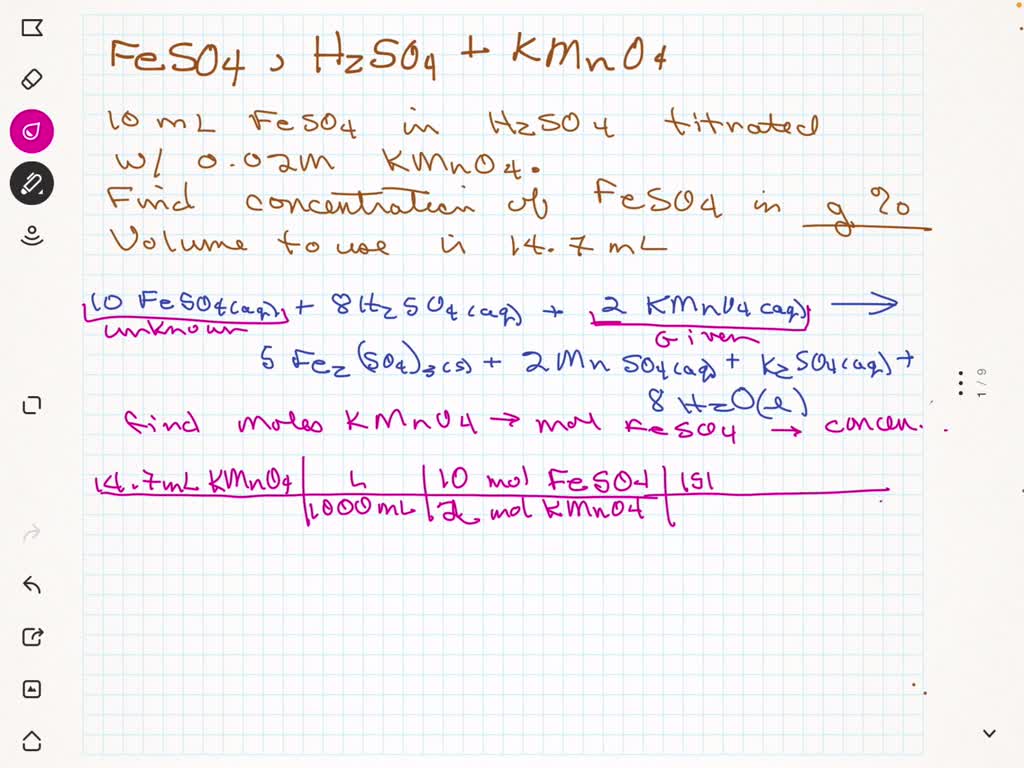 FeSO4, H2SO4 + KMnO4
10 mL FeSO4 in H2SO4 titrated
w/ 0.02M KMnO4.
Find concentration of FeSO4 in g%
Volume to use is 14.7 mL
10 FeSO4(aq) + 8H2SO4(aq) + 2 KMnO4(aq) →
unknown Given
5 Fe2(SO4)3(s) + 2MnSO4(aq) + K2SO4(aq) +
8 H2O(l)
find moles KMnO4 → mol FeSO4 → concen...
14.7mL KMnO4 | L | 10 mol FeSO4 | 151
1000mL | 2 mol KMnO4 |
1/9